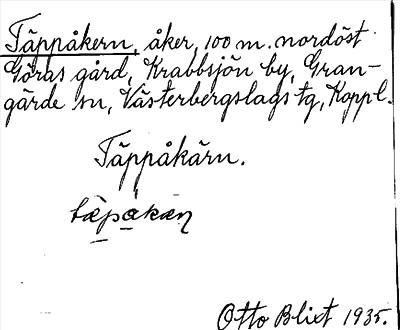 Täppåkern, åker, 100 m. nordöst
Göras gård, Krabbsjön by, Gran-
gärde sn, Västerbergslags tg, Kopp l.
Täppåkärn.
tæ̀påkæn
Otto Blixt 1935.